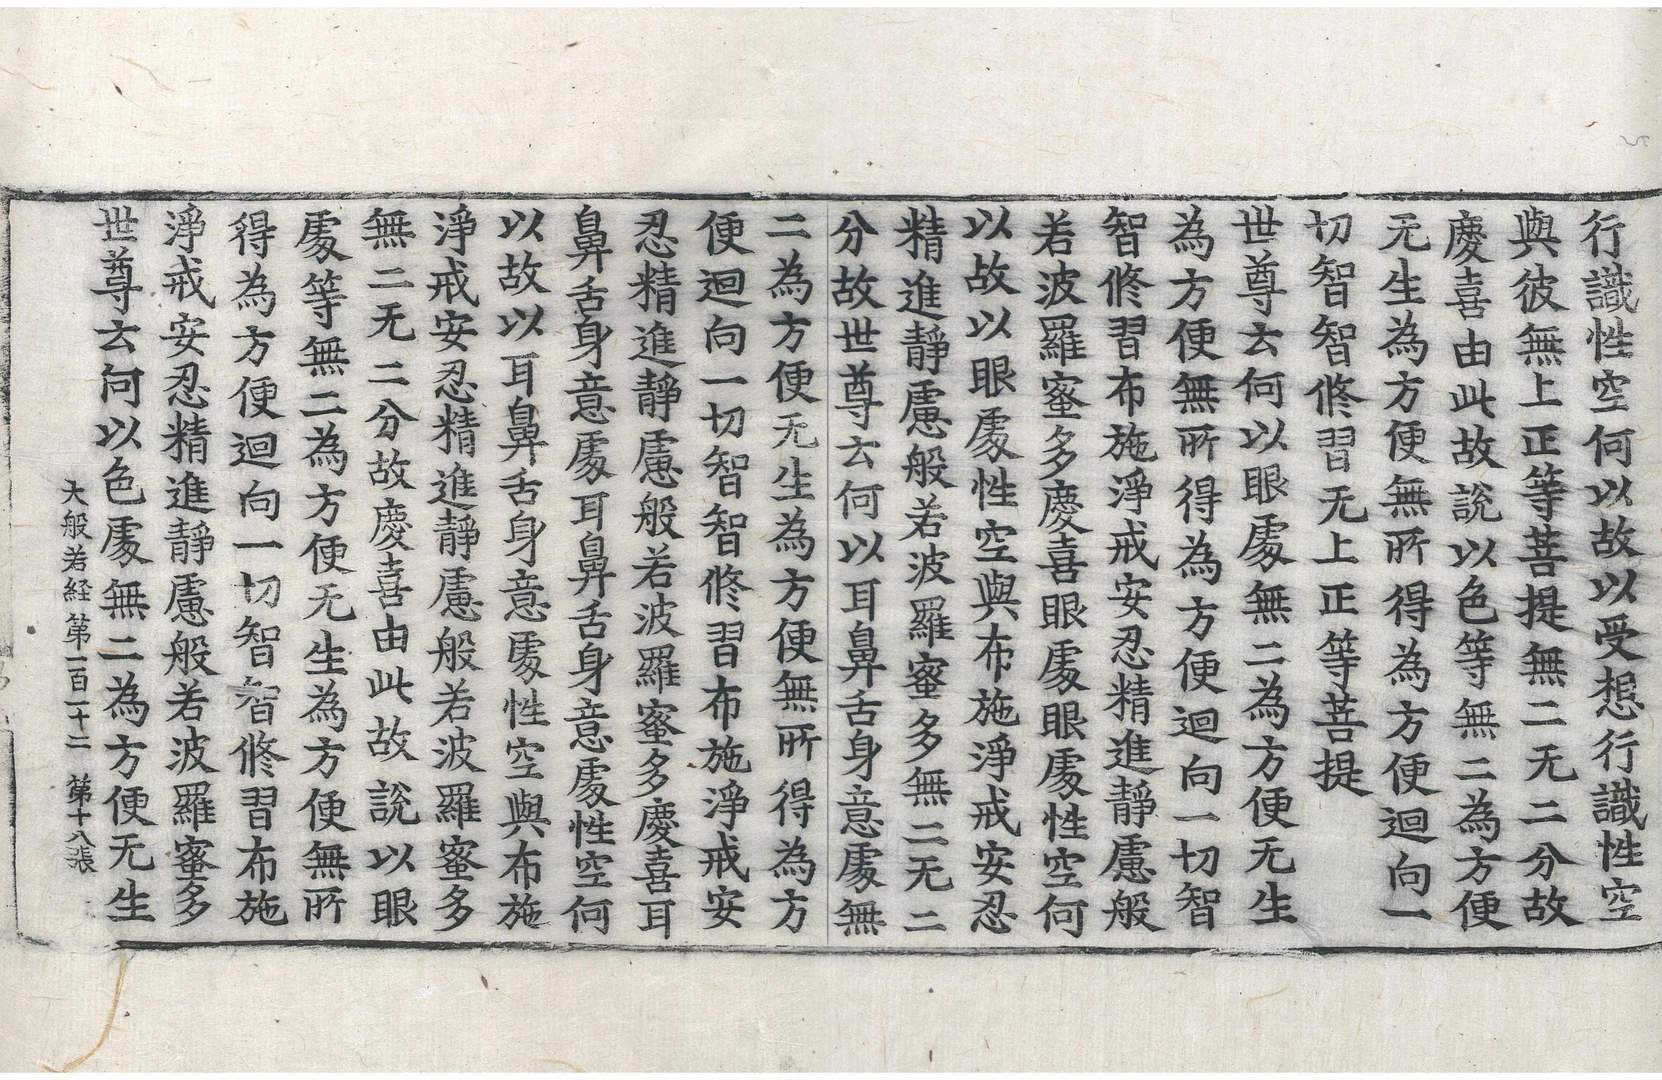 行識性空何以故以受想行識性空
與彼無上正等菩提無二无二分故
慶喜由此故說以色等無二為方便
无生為方便無所得為方便迴向一
切智智修習无上正等菩提
世尊云何以眼處無二為方便无生
為方便無所得為方便迴向一切智
智修習布施淨戒安忍精進靜慮般
若波羅蜜多慶喜眼處眼處性空何
以故以眼處性空與布施淨戒安忍
精進靜慮般若波羅蜜多無二无二
分故世尊云何以耳鼻舌身意處無
二為方便无生為方便無所得為方
便迴向一切智智修習布施淨戒安
忍精進靜慮般若波羅蜜多慶喜耳
鼻舌身意處耳鼻舌身意處性空何
以故以耳鼻舌身意處性空與布施
淨戒安忍精進靜慮般若波羅蜜多
無二无二分故慶喜由此故說以眼
處等無二為方便无生為方便無所
得為方便迴向一切智智修習布施
淨戒安忍精進靜慮般若波羅蜜多
世尊云何以色處無二為方便无生
大般若経第一百一十二 第十八張